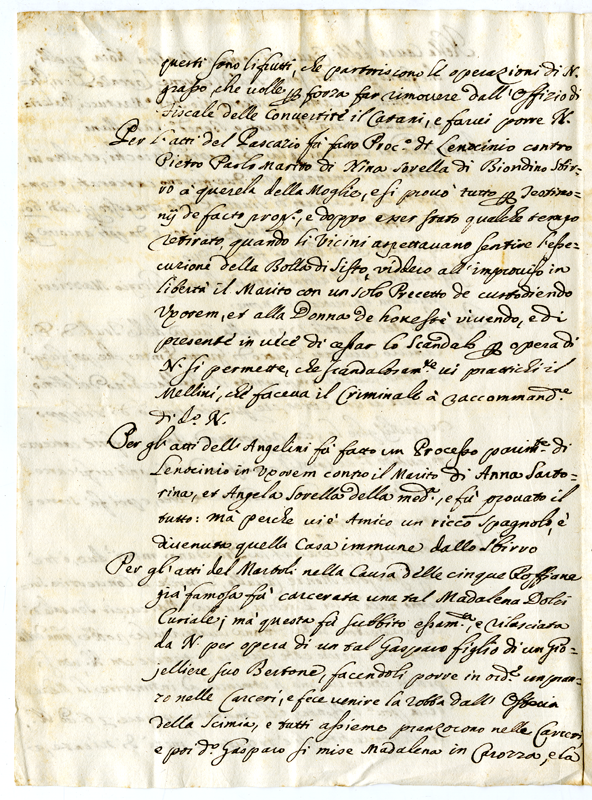 questi sono li frutti, che partoriscono le operazioni di N.
grasso, che volle per forza far rimovere dall'Offizio di
Fiscale delle Convertite il Catani, e farvi porre N.
Per l'atti del Pascazio fù fatto Proc.o di Lenocinio contro
Pietro Paolo Marito di Nina sorella di Biondino Sbir-
ro à querela della Moglie, e si provò tutto per Testimo-
nij de facto prop.o, e doppo esser stato qualche tempo
retirato, quando li Vicini aspettavano sentire l'ese-
cuzione della Bolla di Sisto, viddero all'improviso in
libertà il Marito con un solo Precetto de custodiendo
Uxorem, et alla Donna de honestè vivendo, e di
presente in vece di cessar lo scandalo per opera di
N. si permette, che scandalosam.te vi pratichi il
Mellini, che faceva il Criminale à raccommand.ne
di d.o N.
Per gl'atti dell'Angelini fù fatto un Processo parim.te di
Lenocinio in Uxorem contro il Marito di Anna Sarto-
rina, et Angela sorella della med.a, e fù provato il
tutto: mà perche vi è Amico un ricco Spagnolo, è
divenuta quella Casa immune dallo Sbirro
Per gl'atti del Martoli nella Causa delle cinque Roffiane
già famosa fù carcerata una tal Madalena Dolci
Curiale; mà questa fù subbito esam.ta, e rilasciata
da N. per opera di un tal Gasparo figlio di un Gio-
jelliere suo Bertone, facendoli porre in ord.e un pran-
zo nelle Carceri, e fece venire la robba dall'Osteria
della Scimia, e tutti assieme pranzorono nelle Carceri,
e poi d.o Gasparo si mise Madalena in Carozza, e la